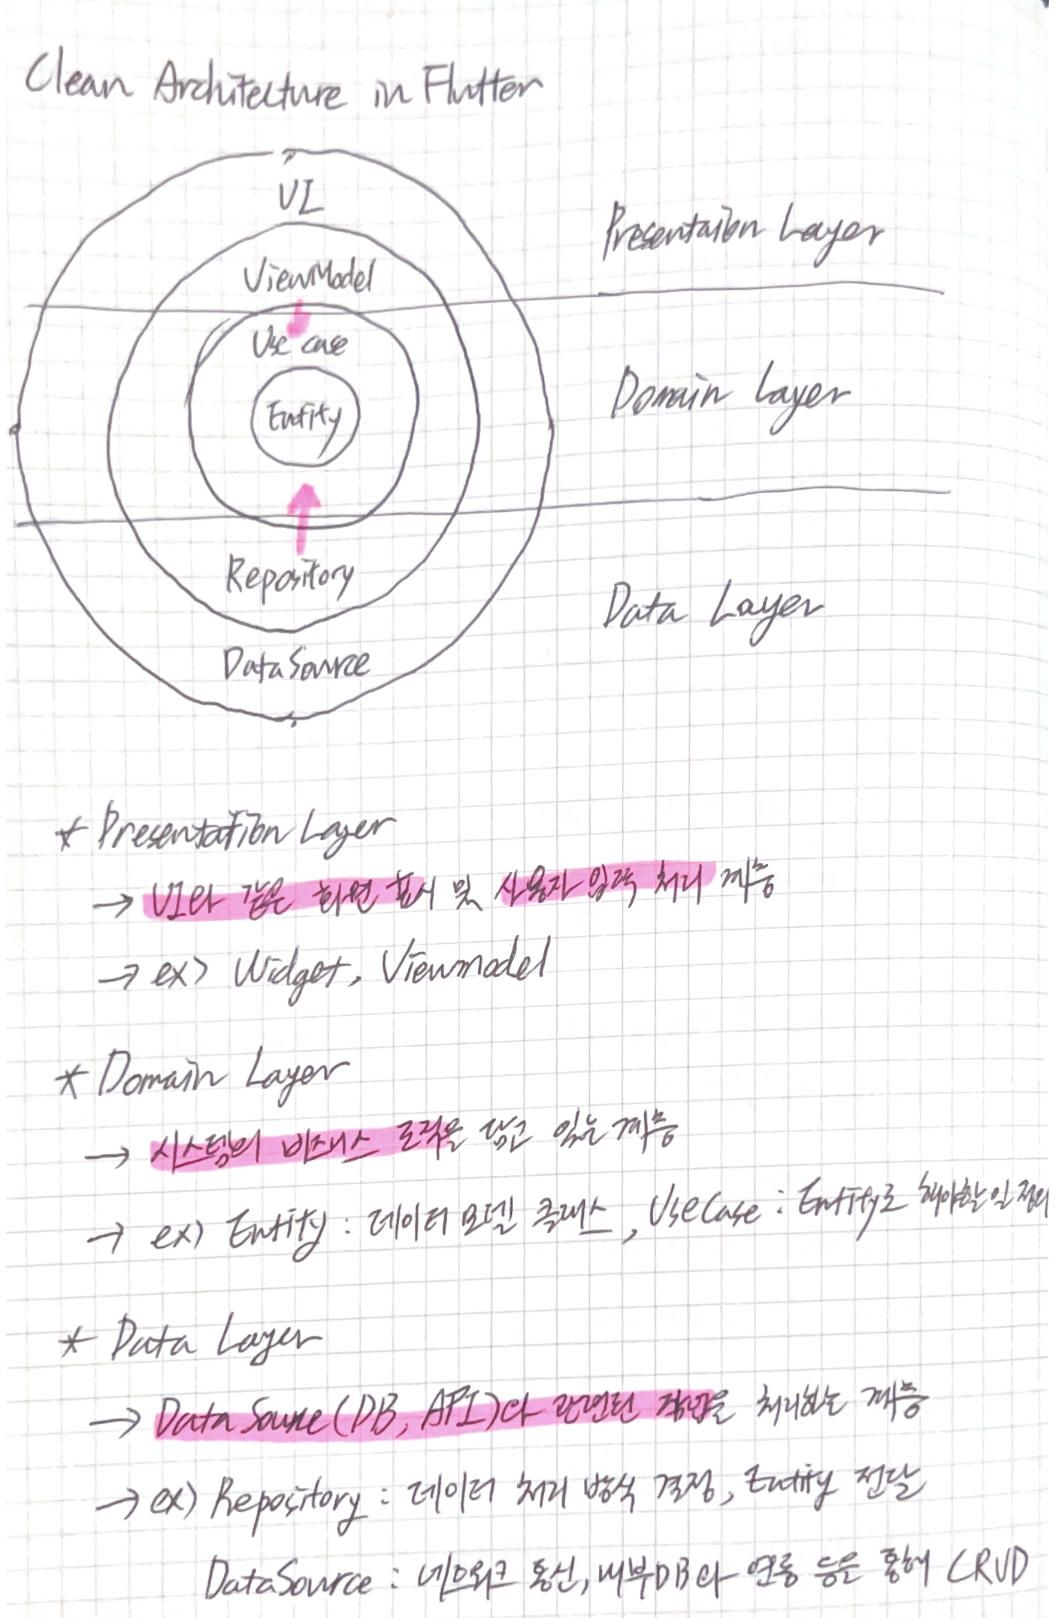 Clean Architecture in Flutter
UI
ViewModel
Use case
Entity
Repository
DataSource
Presentation Layer
Domain Layer
Data Layer
* Presentation Layer
→ UI와 같은 화면 표시 및 사용자 입력 처리 계층
→ ex> Widget, Viewmodel
* Domain Layer
→ 시스템의 비즈니스 로직을 담고 있는 계층
→ ex) Entity : 데이터 모델 클래스, UseCase : Entity로 해야할 일 정의
* Data Layer
→ Data Source(DB, API)과 관련된 작업을 처리하는 계층
→ ex) Repository : 데이터 처리 방식 결정, Entity 전달
DataSource : 네트워크 통신, 내부DB와 연동 등을 통해 CRUD